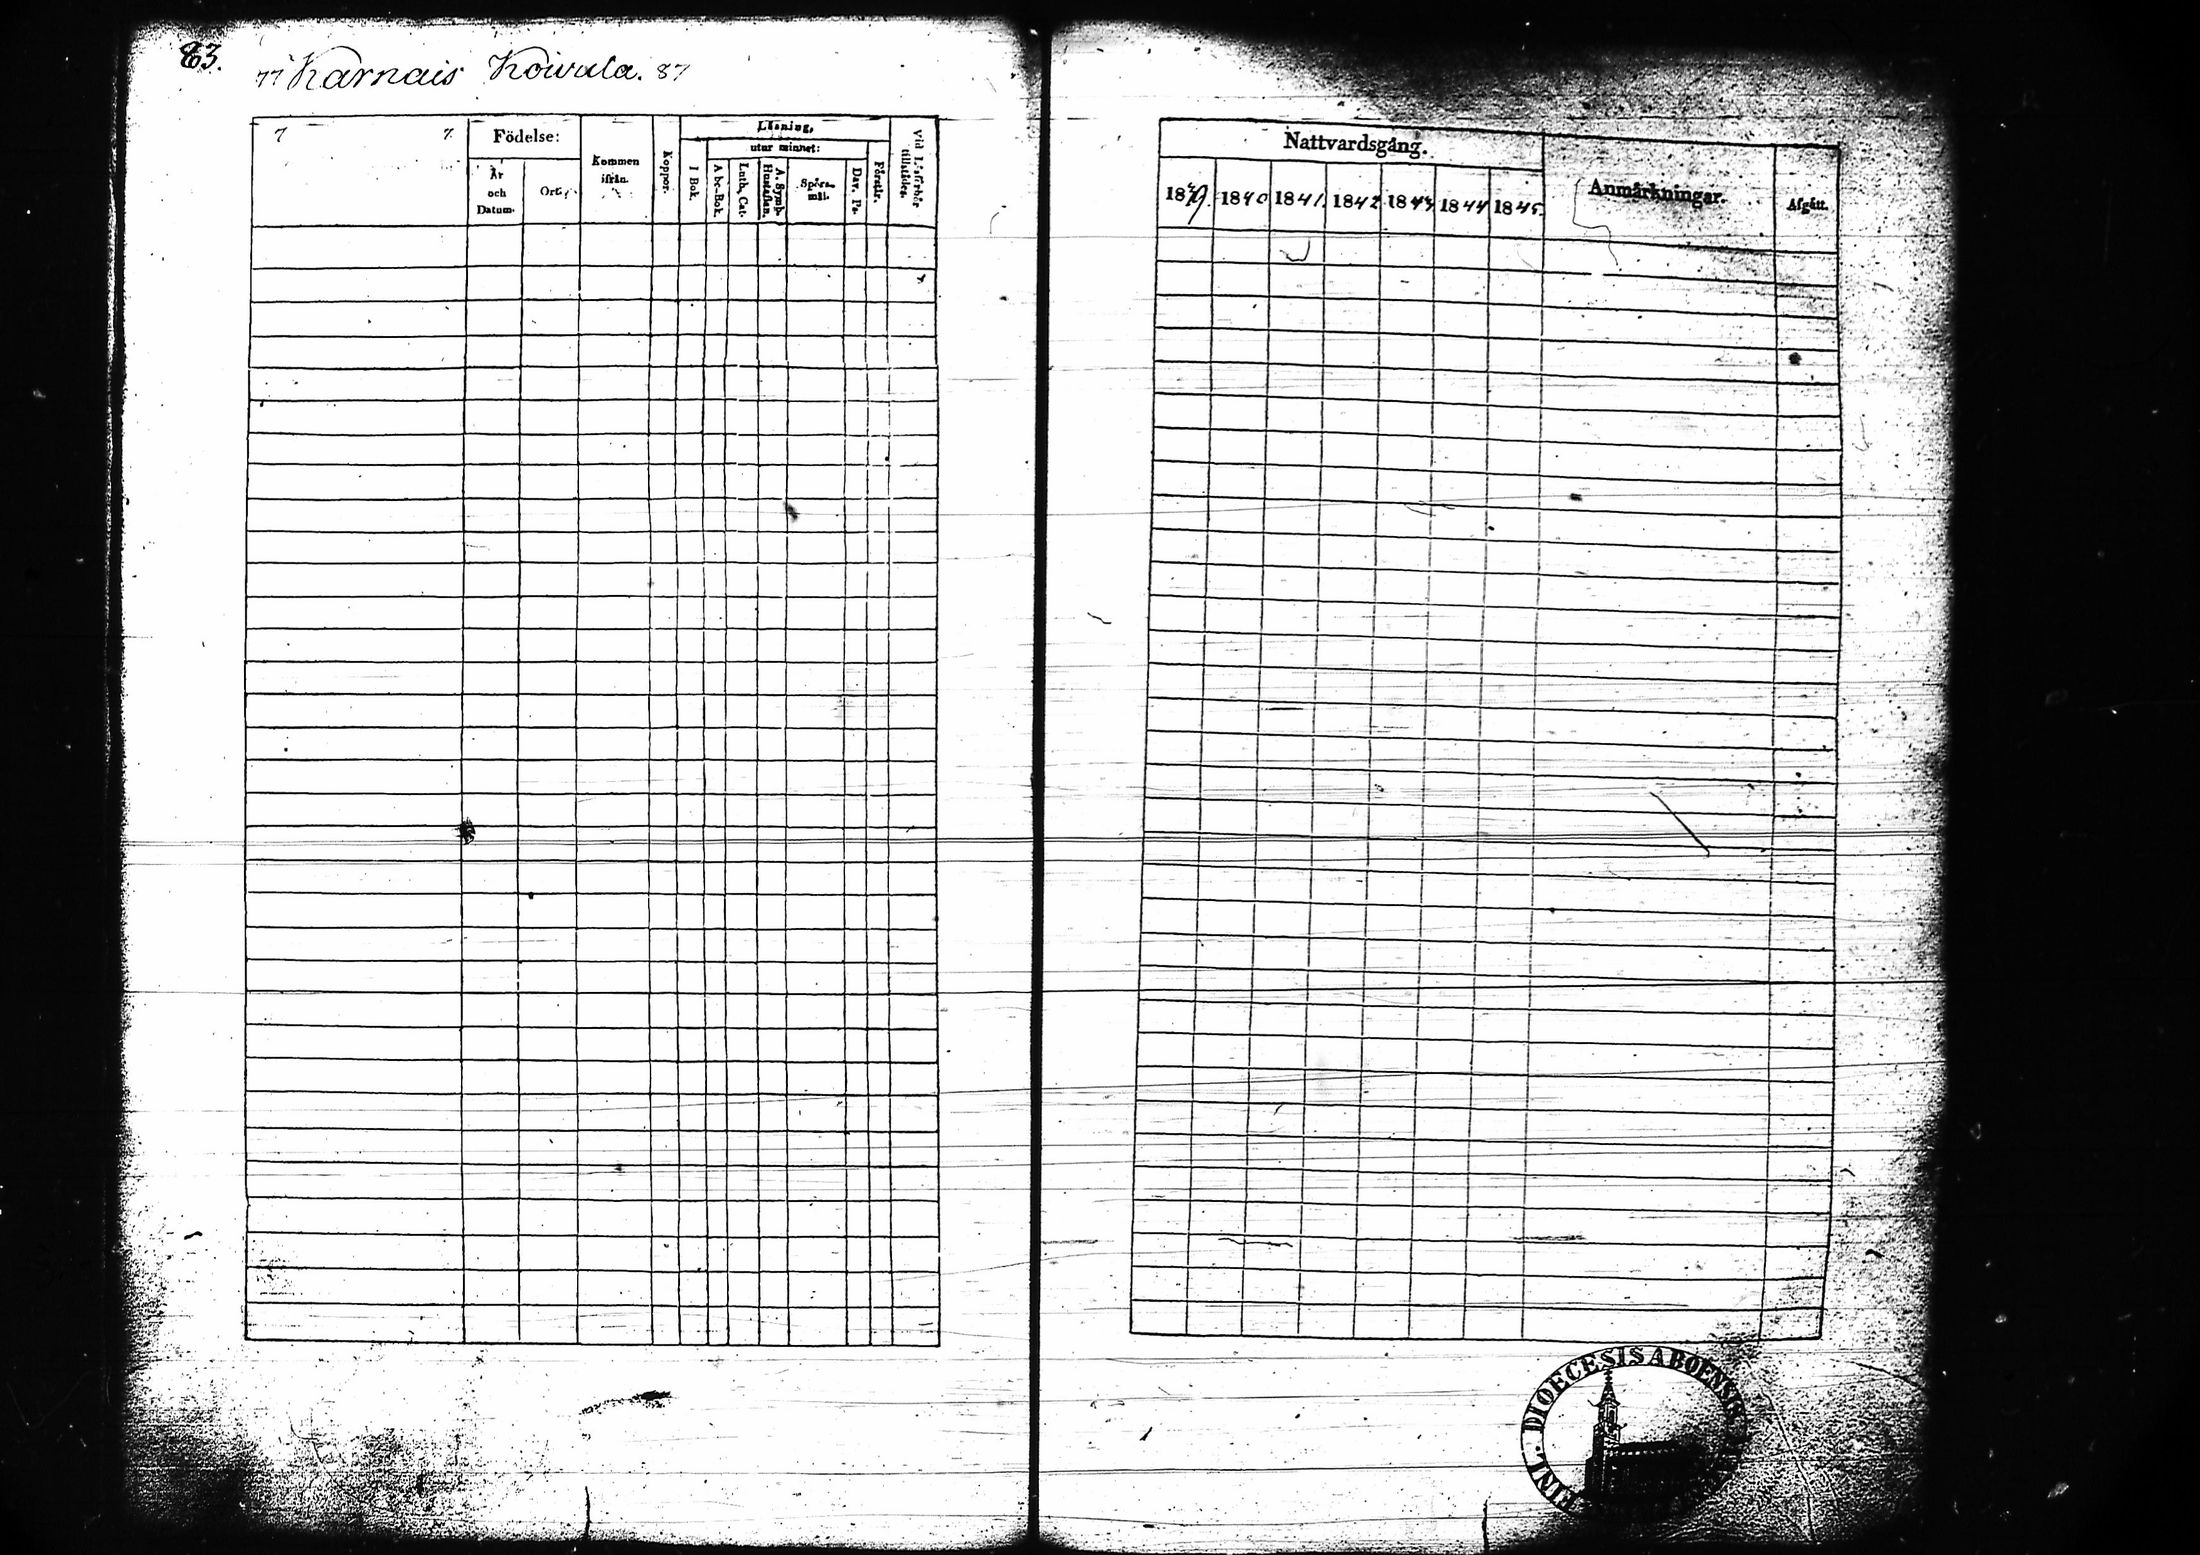 83.
77 Karnais Koivula. 87
7 7.
Födelse:
År
och
Datum.
Ort.
Kommen
ifrån.
Koppor.
Läsning,
utur minnet:
I Bok.
Abc-Bok.
Luth. Cat.
A. Symb.
Hustaflan.
Spörs-
mål.
Dav. Ps.
Förstår.
Vid Läsförhör
tillstädes.
Nattvardsgång.
1839. 1840 1841. 1842 1843 1844 1845.
Anmärkningar.
Afgått.
FINL. DIOECESIS ABOENSIS